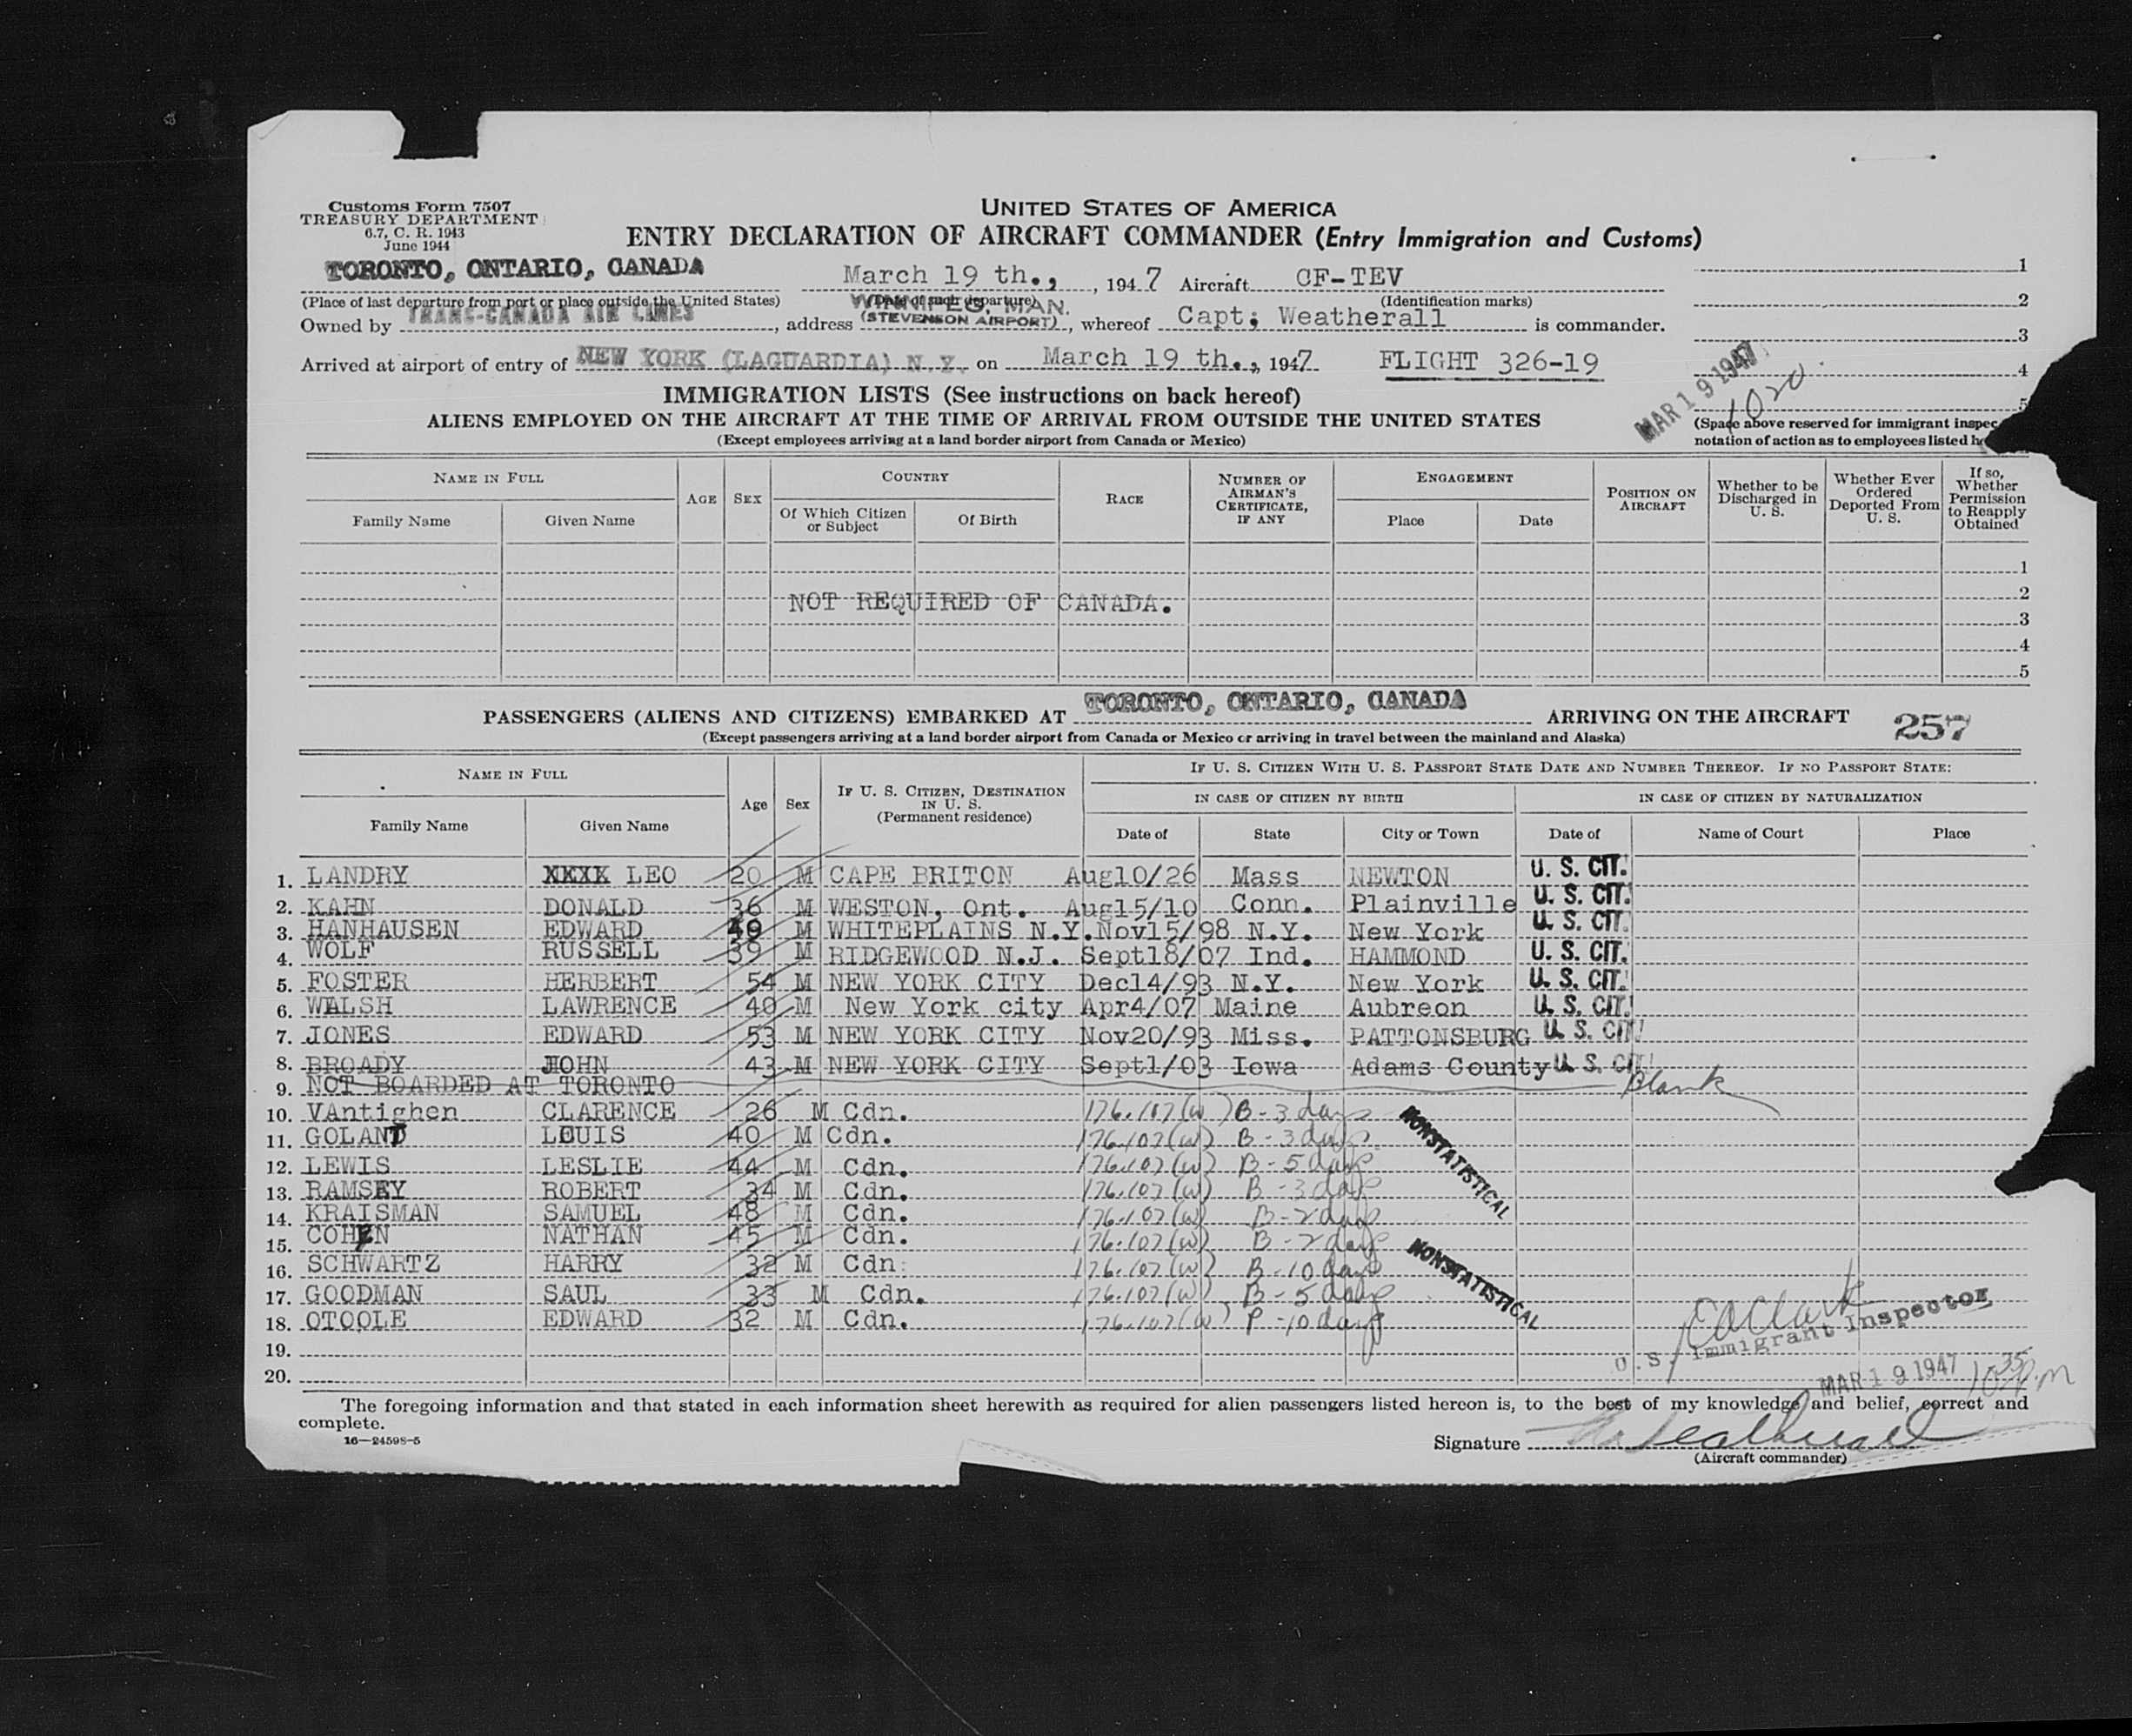 Customs Form 7507
TREASURY DEPARTMENT
6.7, C. R. 1943
June 1944
UNITED STATES OF AMERICA
ENTRY DECLARATION OF AIRCRAFT COMMANDER (Entry Immigration and Customs)
TORONTO, ONTARIO, CANADA March 19 th., , 1947 Aircraft CF-TEV 1
(Place of last departure from port or place outside the United States) (Date of such departure) (Identification marks) 2
WINNIPEG, MAN.
Owned by TRANS-CANADA AIR LINES, address (STEVENSON AIRPORT), whereof Capt; Weatherall is commander. 3
Arrived at airport of entry of NEW YORK (LAGUARDIA) N.Y. on March 19 th., 1947 FLIGHT 326-19 4
MAR 19 1947 1020 5
IMMIGRATION LISTS (See instructions on back hereof)
ALIENS EMPLOYED ON THE AIRCRAFT AT THE TIME OF ARRIVAL FROM OUTSIDE THE UNITED STATES
(Except employees arriving at a land border airport from Canada or Mexico)
(Space above reserved for immigrant inspec
notation of action as to employees listed he
NAME IN FULL AGE SEX COUNTRY RACE NUMBER OF AIRMAN'S CERTIFICATE, IF ANY ENGAGEMENT POSITION ON AIRCRAFT Whether to be Discharged in U. S. Whether Ever Ordered Deported From U. S. If so, Whether Permission to Reapply Obtained
Family Name Given Name Of Which Citizen or Subject Of Birth Place Date
1
NOT REQUIRED OF CANADA. 2
3
4
5
PASSENGERS (ALIENS AND CITIZENS) EMBARKED AT TORONTO, ONTARIO, CANADA ARRIVING ON THE AIRCRAFT 257
(Except passengers arriving at a land border airport from Canada or Mexico or arriving in travel between the mainland and Alaska)
NAME IN FULL Age Sex IF U. S. CITIZEN, DESTINATION IN U. S. (Permanent residence) IF U. S. CITIZEN WITH U. S. PASSPORT STATE DATE AND NUMBER THEREOF. IF NO PASSPORT STATE:
IN CASE OF CITIZEN BY BIRTH IN CASE OF CITIZEN BY NATURALIZATION
Family Name Given Name Date of State City or Town Date of Name of Court Place
1. LANDRY XXXX LEO 20 M CAPE BRITON Aug10/26 Mass NEWTON U. S. CIT.
2. KAHN DONALD 36 M WESTON, Ont. Aug15/10 Conn. Plainville U. S. CIT.
3. HANHAUSEN EDWARD 49 M WHITEPLAINS N.Y. Nov15/98 N.Y. New York U. S. CIT.
4. WOLF RUSSELL 39 M RIDGEWOOD N.J. Sept18/07 Ind. HAMMOND U. S. CIT.
5. FOSTER HERBERT 54 M NEW YORK CITY Dec14/93 N.Y. New York U. S. CIT.
6. WALSH LAWRENCE 40 M New York city Apr4/07 Maine Aubreon U. S. CIT.
7. JONES EDWARD 53 M NEW YORK CITY Nov20/93 Miss. PATTONSBURG U. S. CIT.
8. BROADY JOHN 43 M NEW YORK CITY Sept1/03 Iowa Adams County U. S. CIT.
9. NOT BOARDED AT TORONTO Blank
10. VAntighen CLARENCE 26 M Cdn. 176.107(w) B-3 days
11. GOLANT LOUIS 40 M Cdn. 176.107(w) B-3 days
12. LEWIS LESLIE 44 M Cdn. 176.107(w) B-5 days
13. RAMSEY ROBERT 34 M Cdn. 176.107(w) B-3 days
14. KRAISMAN SAMUEL 48 M Cdn. 176.107(w) B-2 days
15. COHEN NATHAN 45 M Cdn. 176.107(w) B-2 days
16. SCHWARTZ HARRY 32 M Cdn. 176.107(w) B-10 days
17. GOODMAN SAUL 33 M Cdn. 176.107(w) B-5 days
18. OTOOLE EDWARD 32 M Cdn. 176.107(w) P-10 days
19.
20.
NONSTATISTICAL
NONSTATISTICAL
U. S. Immigrant Inspector
MAR 19 1947 10 35 P.M
The foregoing information and that stated in each information sheet herewith as required for alien passengers listed hereon is, to the best of my knowledge and belief, correct and
complete.
16—24598-5
Signature Weatherall
(Aircraft commander)